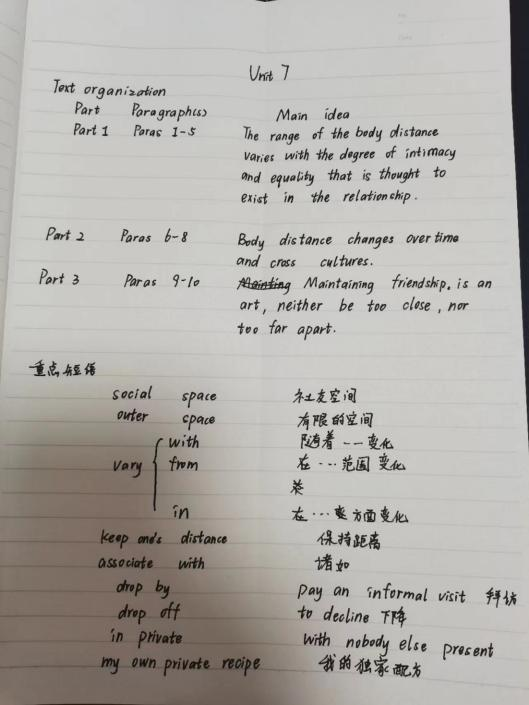 Unit 7
Text organization
Part Paragraph(s) Main idea
Part 1 Paras 1-5 The range of the body distance
varies with the degree of intimacy
and equality that is thought to
exist in the relationship.
Part 2 Paras 6-8 Body distance changes over time
and cross cultures.
Part 3 Paras 9-10 Maintaining friendship. is an
art, neither be too close, nor
too far apart.
重点短语
social space 社交空间
outer space 有限的空间
vary with 随着……变化
from 在…范围变化
in 在…方面变化
keep one's distance 保持距离
associate with 诸如
drop by pay an informal visit 拜访
drop off to decline 下降
in private with nobody else present
my own private recipe 我的独家配方